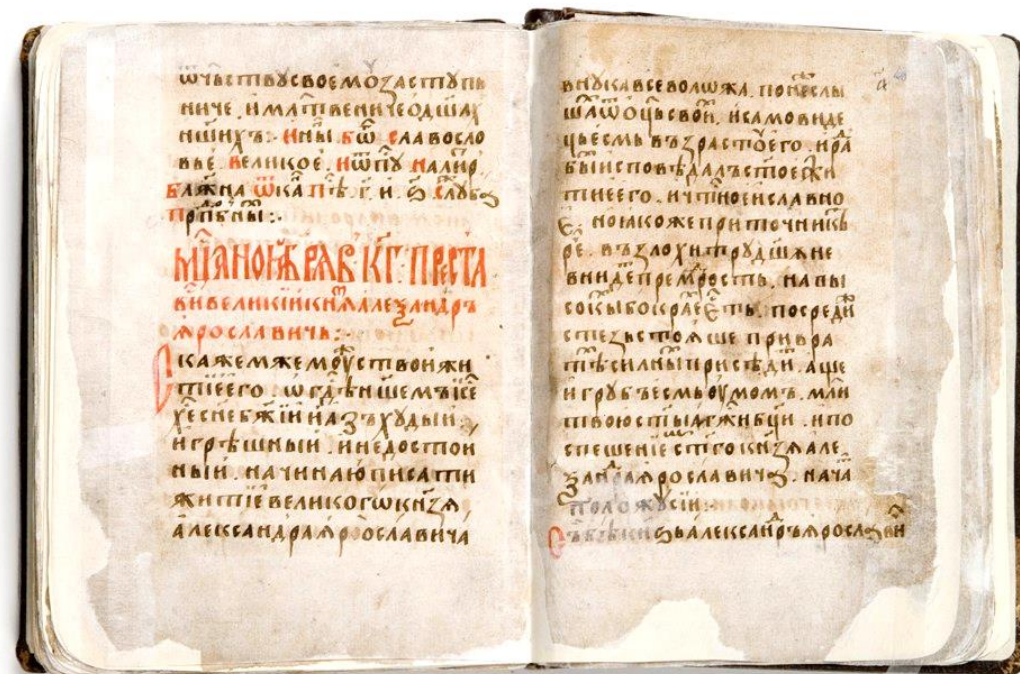 ѿчьствꙋ своемꙋ застꙋпь
ниче, и мл҃твениче о дш҃ах
нших҇ъ. Ины бѡ славосло
вье великое. и ѿпꙋ
бл҃жна ѿ ка пѣ. г҃. и. ѕ҃. слꙋбѫ
прпⷣбны:·
Мц҇а ноѧб҇рѧ в҃ к҃г. преста
ви великїи кнѧⷥ алеѯандръ
ѧрославичь:·
Скажем же мꙋжство и жи
тїе его. ѡ гдⷭ҇ѣ ншемъ іс҃ѣ
хⷭ҇ѣ сн҃ѣ бж҃їи и азъ хꙋдыи
и грѣшныи. и недостои
ныи. начинаю писати
житїе великогѡ кнѧзѧ
александра ѧрославича
внꙋка всеволѡжа. понеⷤ слы
шаⷯ ѿ оц҃ь свои. и самовиде
ць есмь възрастꙋ его. и раⷣ
бых исповѣдалъ ст҃ое жи
тие его. и чтⷭ҇ное и славно
е҇. но ꙗкоже приточникь
реⷱ҇. въ злохитрꙋ дш҃ꙋ не
внидеⷮ премⷣрость. на вы
сокых бо краеⷯ есть. посреди
стезь стоѧше при вра
тѣⷯ силныⷯ присѣдиⷮ. аще
и грꙋбъ есмь ꙋмомъ. мл҃и
твою ст҃ыа гж҃и бц҃и. и по
спешениеⷨ ст҃го кнѧзѧ але
ѯандра ѧрославича. нача
положꙋ сїи:·
александръ ѧрослави